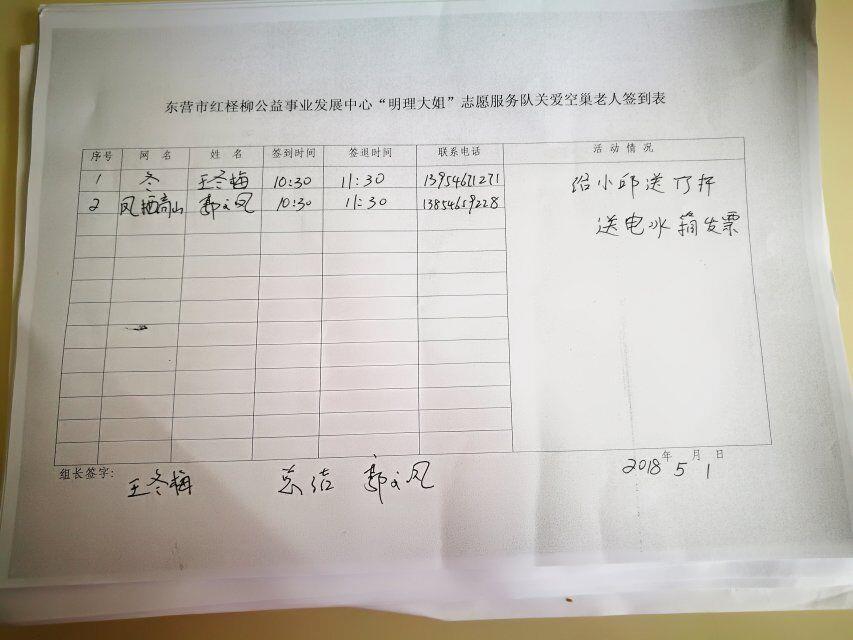 东营市红柽柳公益事业发展中心“明理大姐”志愿服务队关爱空巢老人签到表
序号 网 名 姓 名 签到时间 签退时间 联系电话 活 动 情 况
1 冬 王冬梅 10:30 11:30 13954671271 给小邱送了杯
2 凤栖高山 郭文凤 10:30 11:30 13854659228
送电冰箱发票
组长签字: 年 月 日
王冬梅 总结 郭文凤 2018 5 1